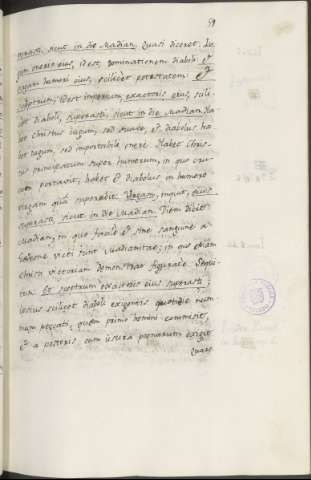 59
superasti, sicut in die Madian. Quasi diceret: Ju-
gum oneris eius, id est, dominationem diaboli, et
virgam humeri eius, scilicet potestatem: et
sceptrum, id est imperium, exactoris eius, scili-
cet diaboli, superasti, sicut in die Madian. Ha-
bet Christus iugum, sed suave, et diabolus ha-
bet iugum, sed importabile vere. Habet Chris-
tus principatum super humerum, in quo cru-
cem portavit, habet et diabolus in humero
virgam qua superatur. Virgam, inquit, eius
superasti, sicut in die Madian. Diem dicit
Madian, in quo facile et sine sanguine a
Gedeone victi sunt Madianitae, in quo etiam
Christi victoriam demonstrat figurate. Sequi-
tur: Et sceptrum exactoris eius superasti;
ipsius scilicet diaboli exigentis quotidie
peccati, quem primo homini commisit,
et a posteris cum usura poenarum exigit.
Quare